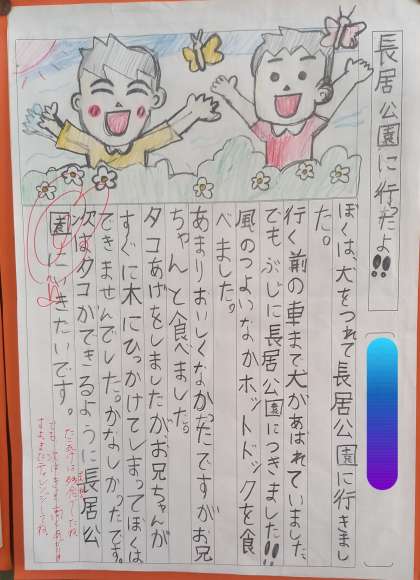 長居公園に行ったよ!!
ぼくは、犬をつれて長居公園に行きまし
た。
行く前の車まで犬があばれていました、
でもぶじに長居公園につきました!!
風のつよいなかホットドックを食
べました。
あまりおいしくなかったですがお兄
ちゃんと食べました。
タコあげをしましたがお兄ちゃんが
すぐに木にひっかけてしまってぼくは
できませんでした。かなしかったです。
次はタコができるように長居公
園にいきたいです。